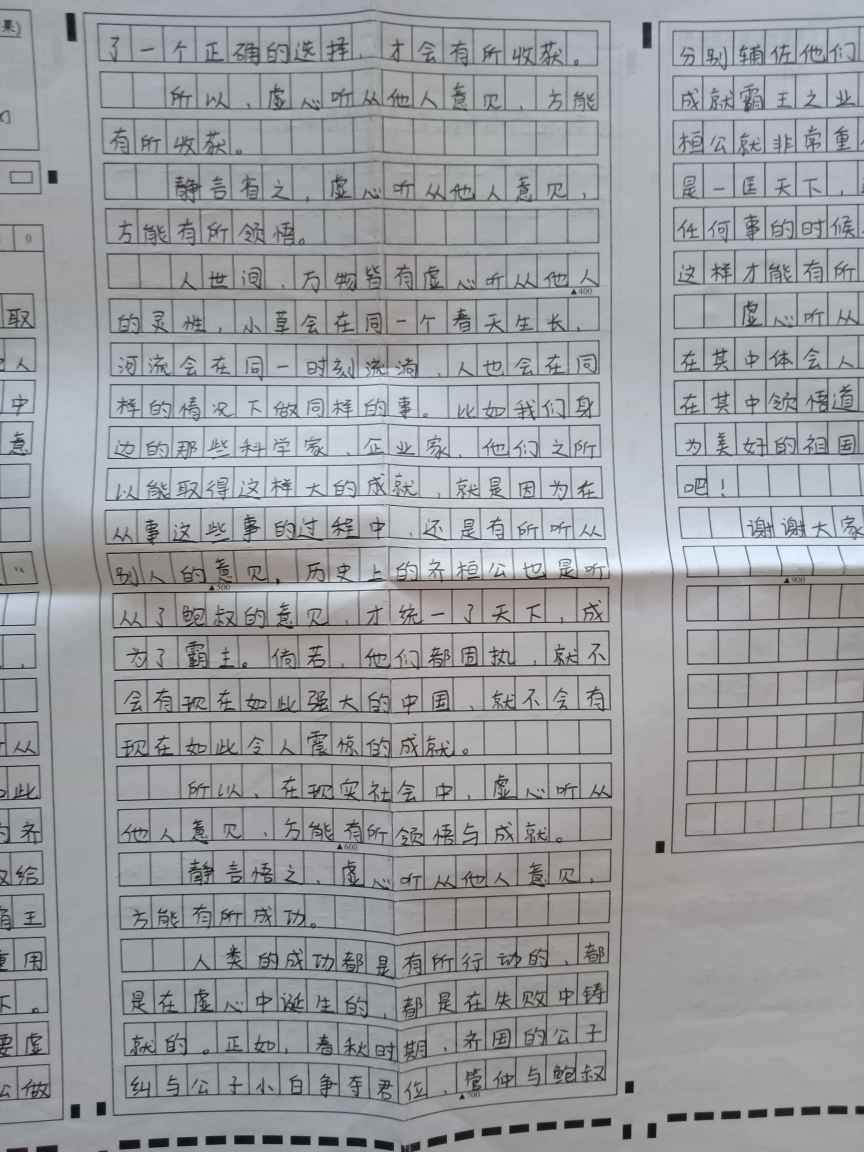 果)
取
人
中
意
"
从
此
齐
给
王
用
。
要虚
公做
了一个正确的选择，才会有所收获。
所以，虚心听从他人意见，方能
有所收获。
静言省之，虚心听从他人意见，
方能有所领悟。
人世间，万物皆有虚心听从他人
▲400
的灵性，小草会在同一个春天生长，
河流会在同一时刻流淌，人也会在同
样的情况下做同样的事。比如我们身
边的那些科学家、企业家，他们之所
以能取得这样大的成就，就是因为在
从事这些事的过程中，还是有所听从
别人的意见，历史上的齐桓公也是听
▲500
从了鲍叔的意见，才统一了天下，成
为了霸主。倘若，他们都固执，就不
会有现在如此强大的中国，就不会有
现在如此令人震惊的成就。
所以，在现实社会中，虚心听从
他人意见，方能有所领悟与成就。
▲600
静言悟之，虚心听从他人意见，
方能有所成功。
人类的成功都是有所行动的，都
是在虚心中诞生的，都是在失败中铸
就的。正如，春秋时期，齐国的公子
纠与公子小白争夺君位，管仲与鲍叔
▲700
分别辅佐他们
成就霸王之业
桓公就非常重
是一匡天下，
任何事的时候
这样才能有所
虚心听从
在其中体会人
在其中领悟道
为美好的祖国
吧！
谢谢大家
▲900